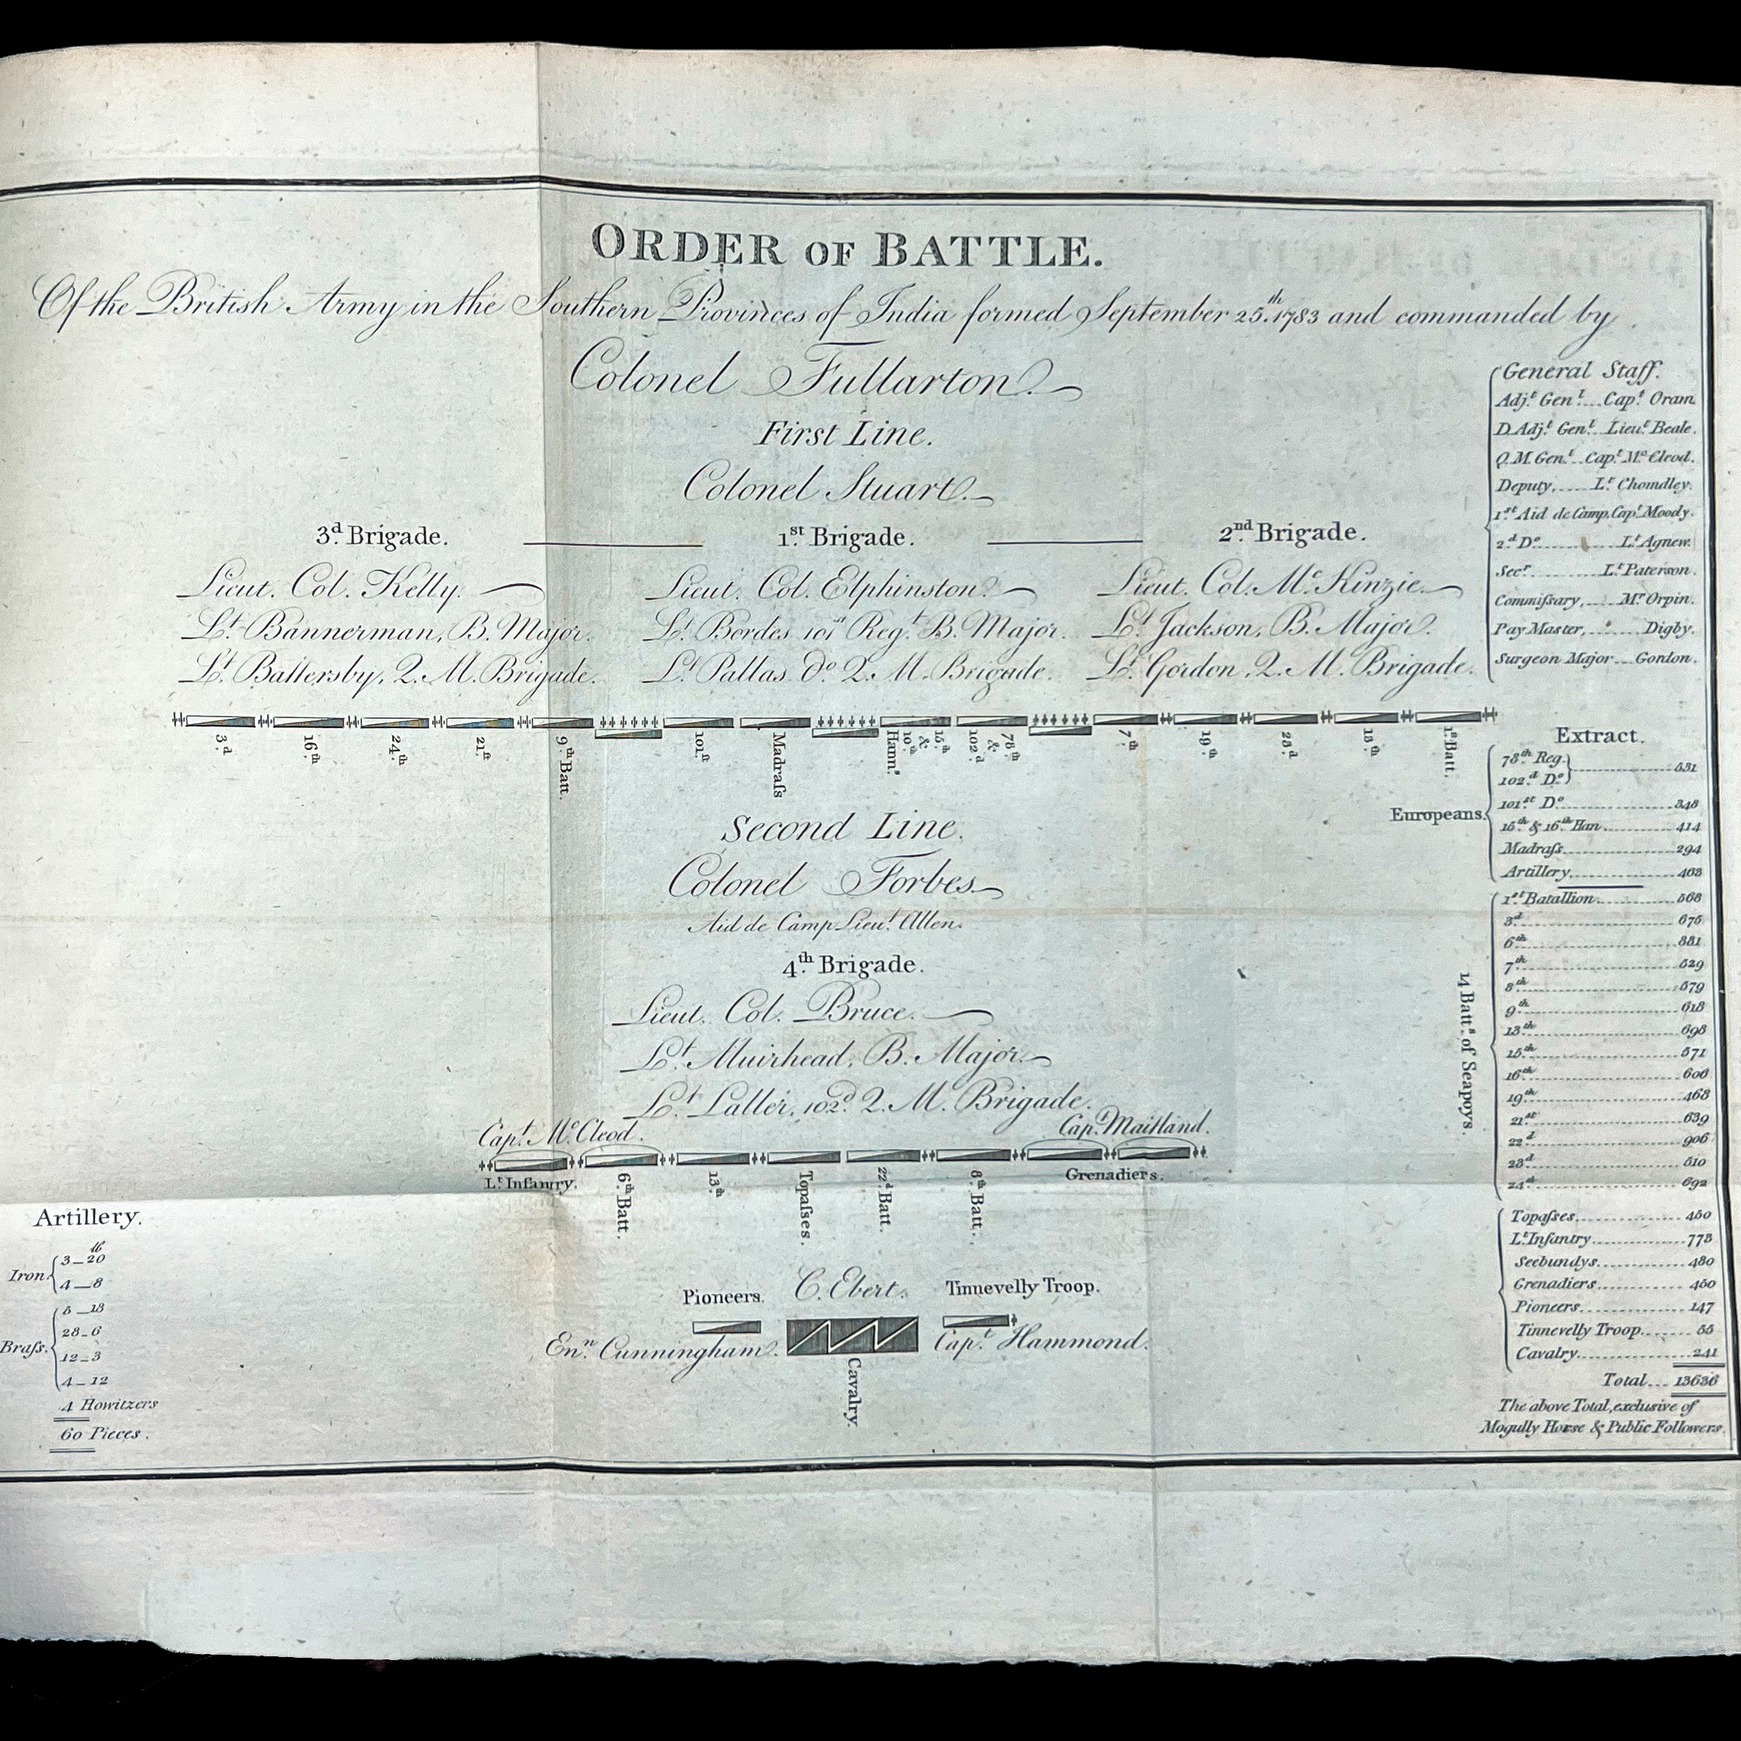 ORDER OF BATTLE.
Of the British Army in the Southern Provinces of India formed September 25.th 1783 and commanded by
Colonel Fullarton.
First Line.
Colonel Stuart.
3.d Brigade.
Lieut. Col. Kelly.
L.t Bannerman, B. Major.
L.t Battersby, Q. M. Brigade.
1.st Brigade.
Lieut. Col. Elphinston.
L.t Bordes 101st Reg.t B. Major.
L.t Pallas d.o Q. M. Brigade.
2.nd Brigade.
Lieut. Col. Mc. Kinzie.
L.t Jackson, B. Major.
L.t Gordon, Q. M. Brigade.
3.d
16.th
24.th
21.st
9.th Batt.
101.st
Madraſs
15.th
&
10.th
Hann.s
78.th
&
102.d
7.th
19.th
23.d
13.th
1.st Batt.
Second Line.
Colonel Forbes
Aid de Camp Lieu.t Allen.
4.th Brigade.
Lieut. Col. Bruce.
L.t Muirhead, B. Major.
L.t Laller, 102.d Q. M. Brigade.
Cap.t Mc. Cleod.
Cap.t Maitland.
L.t Infantry.
6.th Batt.
13.th
Topaſses.
22.d Batt.
8.th Batt.
Grenadiers.
Pioneers.
C. Ebert.
Tinnevelly Troop.
En.n Cunningham.
Cap.t Hammond.
Cavalry.
Artillery.
lb
Iron. 3_20
4_8
Braſs. 5_18
28_6
12_3
4_12
4 Howitzers
60 Pieces.
General Staff.
Adj.t Gen.l Cap.t Oram.
D. Adj.t Gen.l Lieu.t Beale.
Q. M. Gen.l Cap.t Mc. Cleod.
Deputy, L.t Chomdley.
1.st Aid de Camp, Cap.t Moody.
2.d D.o L.t Agnew.
Sec.r L.t Paterson.
Commiſsary, M.r Orpin.
Pay Master, Digby.
Surgeon Major Gordon.
Extract.
Europeans.
78.th Reg.
102.d D.o 831
101.st D.o 348
15.th & 16.th Han. 414
Madraſs 294
Artillery 403
14 Batt.s of Seapoys.
1.st Batallion 568
3.d 675
6.th 881
7.th 529
8.th 579
9.th 618
13.th 698
15.th 571
16.th 606
19.th 463
21.st 639
22.d 906
23.d 510
24.th 692
Topaſses 450
L.t Infantry 773
Seebundys 480
Grenadiers 450
Pioneers 147
Tinnevelly Troop 55
Cavalry 241
Total 13636
The above Total, exclusive of
Mogully Horse & Public Followers.